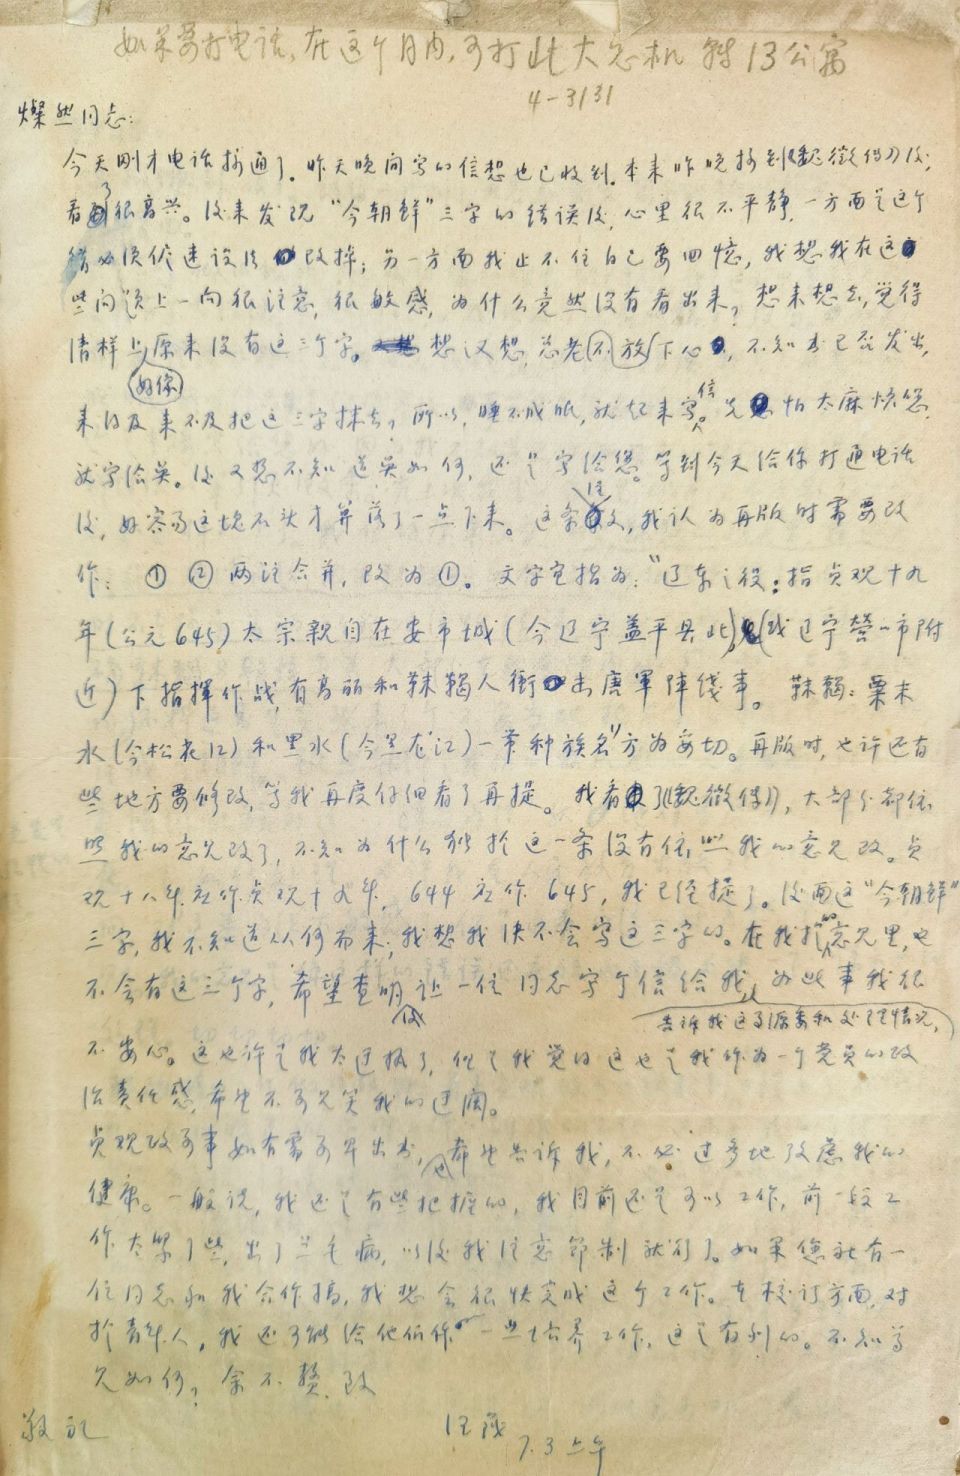 如果要打电话,在这个月内,可打此大总机 转13公寓
4-3131
燦然同志:
今天刚才电话接通了。昨天晚间写的信想也已收到。本来昨晚接到《魏徵传》后,
看了很高兴。后来发现“今朝鲜”三字的错误后,心里很不平静,一方面是这个
错必须火速设法改掉;另一方面我止不住自己要回憶,我想我在这
些问题上一向很注意,很敏感,为什么竟然没有看出来?想来想去,觉得
清样上好像原来没有这三个字。想又想,总老不放下心,不知书已否发出,
来得及来不及把这三字抹去?所以,睡不成眠,就起来写信。先怕太麻烦您,
就写给英。后又想不知道英如何,还是写给您。等到今天给你打通电话
后,好容易这块石头才算落了一点下来。这条注文,我认为再版时需要改
作:①②两注合并,改为①。文字宜指为:“辽东之役:指贞观十九
年(公元645)太宗親自在安市城(今辽宁盖平县北),(或辽宁營口市附
近)下指揮作战,有高丽和靺鞨人衝击唐軍陣线事。靺鞨:粟末
水(今松花江)和黑水(今黑龙江)一带种族名”方为妥切。再版时,也许还有
些地方要修改,等我再度仔细看了再提。我看了《魏徵传》,大部分都依
照我的意见改了,不知为什么独於这一条没有依照我的意见改。贞
观十八年应作贞观十九年,644应作645,我已经提了。后面这“今朝鲜”
三字,我不知道从何而来;我想我决不会写这三字的。在我提的意见里,也
不会有这三个字,希望查明后让一位同志写个信给我,告诉我这事原委和处理情况,为此事我很
不安心。这也许是我太过敏了,但是我觉得这也是我作为一个党员的政
治责任感,希望不要见笑我的迂阔。
贞观政要事如有需要早出书,也希望告诉我,不必过多地考虑我的
健康。一般说,我还是有些把握的,我目前还是可以工作,前一段工
作太紧了些,出了些毛病,以后我注意节制就行了。如果您社有一
位同志和我合作搞,我想会很快完成这个工作。在校订方面,对
於青年人,我还可能给他们作一些培养工作,这是有利的。不知尊
见如何?余不赘,致
敬礼
汪篯
7.3上午